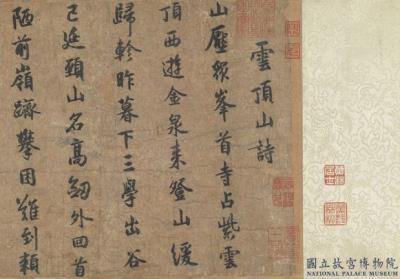 雲頂山詩
山壓眾峯首寺占紫雲
頂西遊金泉來登山緩
歸軫昨暮下三學出谷
已延頸山名高劒外回首
陋前嶺躋攀困難到頼
國立故宮博物院
NATIONAL PALACE MUSEUM